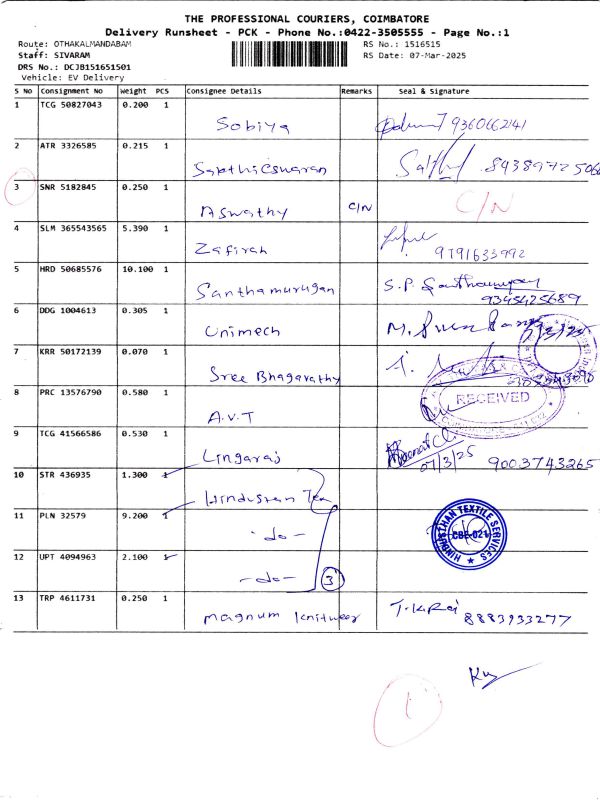 THE PROFESSIONAL COURIERS, COIMBATORE
Delivery Runsheet - PCK - Phone No.:0422-3505555 - Page No.:1
Route: OTHAKALMANDABAM RS No.: 1516515
Staff: SIVARAM RS Date: 07-Mar-2025
DRS No.: DCJB151651501
Vehicle: EV Delivery
S No Consignment No Weight PCS Consignee Details Remarks Seal & Signature
1 TCG 50827043 0.200 1 Sobiya 9360662141
2 ATR 3326585 0.215 1 Sapthieswaran
3 SNR 5182845 0.250 1 Aswathy C/N C/N
4 SLM 365543565 5.390 1 Zafirah 9791633992
5 HRD 50685576 10.100 1 Santhamurugan S.P. Santhamurugan
9345425689
6 DDG 1004613 0.305 1 Unimech
7 KRR 50172139 0.070 1 Sree Bhagavathy
8 PRC 13576790 0.580 1 A.V.T RECEIVED
9 TCG 41566586 0.530 1 Lingaraj 07/3/25 9003743265
10 STR 436935 1.300 1 Hindustan Tex
11 PLN 32579 9.200 1 -do- HINDUSTHAN TEXTILE SERVICES CBE-021
12 UPT 4094963 2.100 1 -do- 3
13 TRP 4611731 0.250 1 Magnum Knitweer 8883933277
1